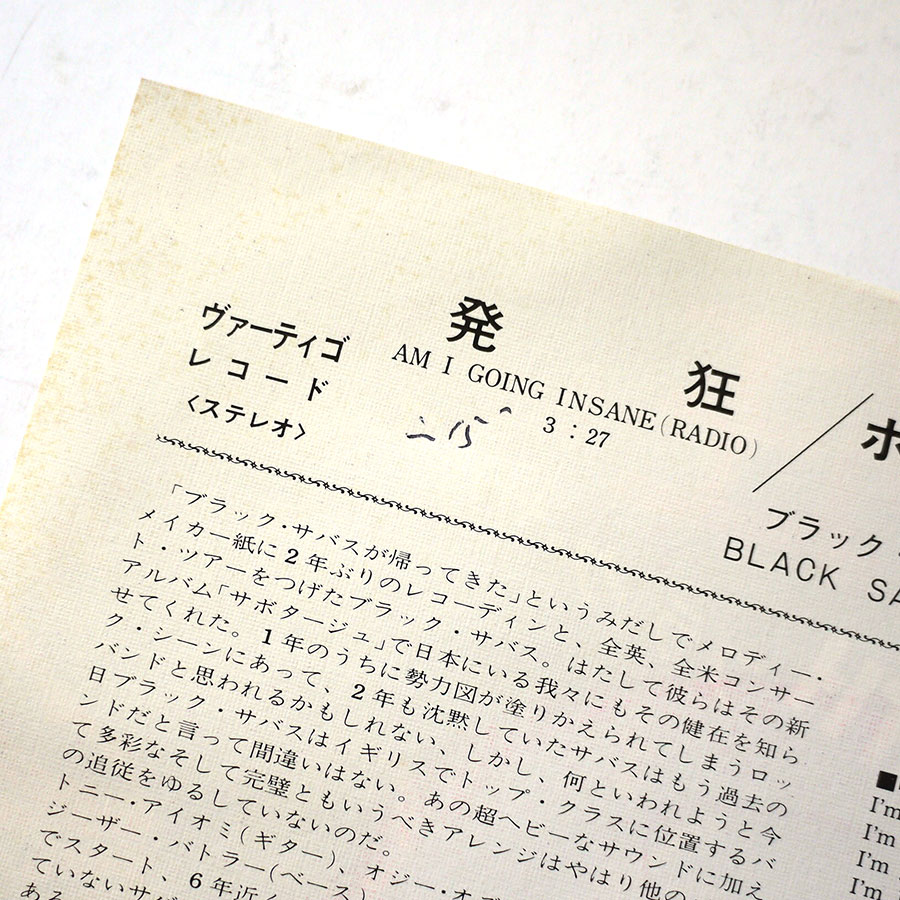 発狂
AM I GOING INSANE (RADIO)
3:27
ヴァーティゴ
レコード
〈ステレオ〉
ホ
ブラック・
BLACK SA
「ブラック・サバスが帰ってきた」というみだしでメロディー・
メイカー紙に2年ぶりのレコーディンと、全英、全米コンサー
ト・ツアーをつげたブラック・サバス。はたして彼らはその新
アルバム「サボタージュ」で日本にいる我々にもその健在を知ら
せてくれた。1年のうちに勢力図が塗りかえられてしまうロッ
ク・シーンにあって、2年も沈黙していたサバスはもう過去の
バンドと思われるかもしれない、しかし、何といわれようと今
日ブラック・サバスはイギリスでトップ・クラスに位置するバ
ンドだと言って間違いはない。あの超ヘビーなサウンドに加え
て多彩なそして完璧ともいうべきアレンジはやはり他の
の追従をゆるしていないのだ。
トニー・アイオミ(ギター)、オジー・オ
ジーザー・バトラー(ベース)
でスタート、6年近く
ていないサバ
ある
■
I'm
I'm
I'm
I'm